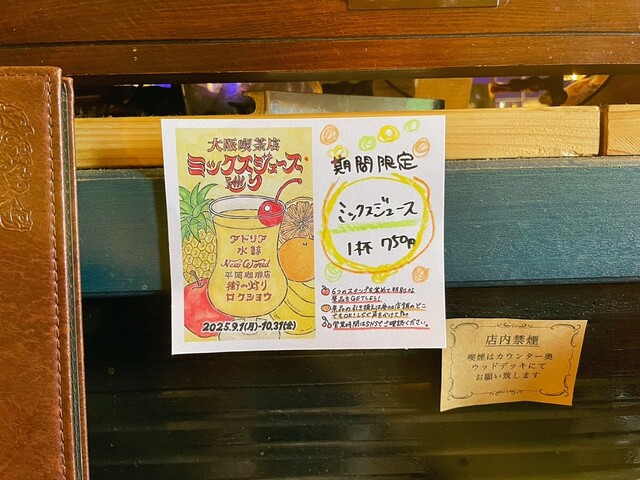 大阪喫茶店
ミックスジュース
巡り
アドリア
水鯨
New World
平岡珈琲店
街の灯り
ロクショウ
2025.9.1(月)-10.31(金)
期間限定
ミックスジュース
1杯 750円
6つのスタンプを集めて特別な
景品をGETしよう!
景品の引き換えは参加店舗のどこ
でもOK!
営業時間はSNSでご確認ください。
店内禁煙
喫煙はカウンター奥
ウッドデッキにて
お願い致します